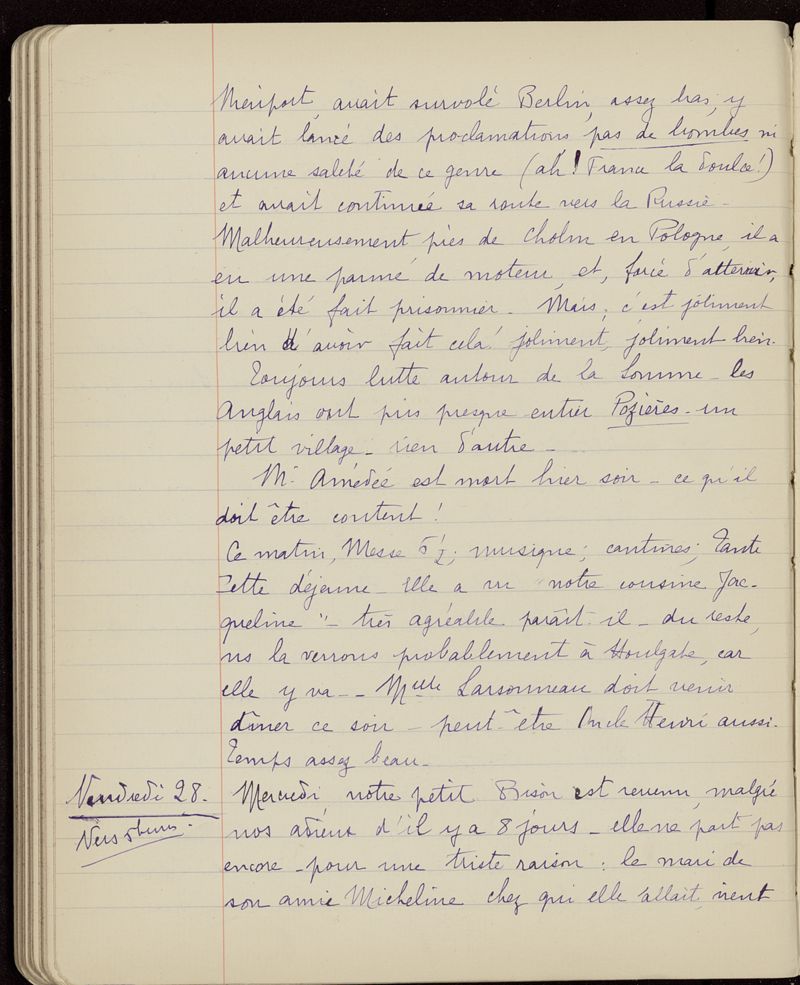 Niéuport, avait survolé Berlin, assez bas, y
avait lancé des proclamations, pas de bombes ni
aucune saleté de ce genre (ah! France la doulce!)
et avait continuée sa route vers la Russie -
Malheureusement près de Cholm en Pologne, il a
eu une panne de moteur, et, forcé d'atterrir,
il a été fait prisonnier - Mais, c'est joliment
bien d'avoir fait cela! joliment, joliment bien.
Toujours lutte autour de la Somme - les
Anglais ont pris presque entier Pozières - un
petit village - rien d'autre -
Mr. Amédée est mort hier soir - ce qu'il
doit être content!
Ce matin, Messe 6½; musique; cantines; Tante
déjeune - Elle a vu "notre cousine Jac-
queline" - très agréable paraît-il - du reste,
ns la verrons probablement à Houlgate, car
elle y va - - Melle Larsonneau doit venir
dîner ce soir - peut-être Oncle Henri aussi.
Temps assez beau -
Vendredi 28.
Vers 5 heures.
Mercredi, notre petit Bison est revenu, malgré
nos adieux d'il y a 8 jours - elle ne part pas
encore - pour une triste raison: le mari de
son amie Micheline chez qui elle allait, vient